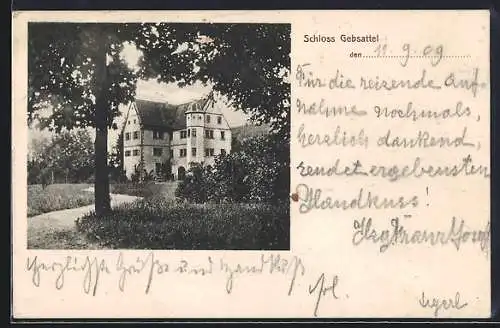 Schloss Gebsattel
den 11.9.09
Für die reizende Auf-
nahme nochmals,
herzlich dankend,
sendet ergebensten
Handkuss!
Franz Josef
Herzliche Grüße und Handkuß